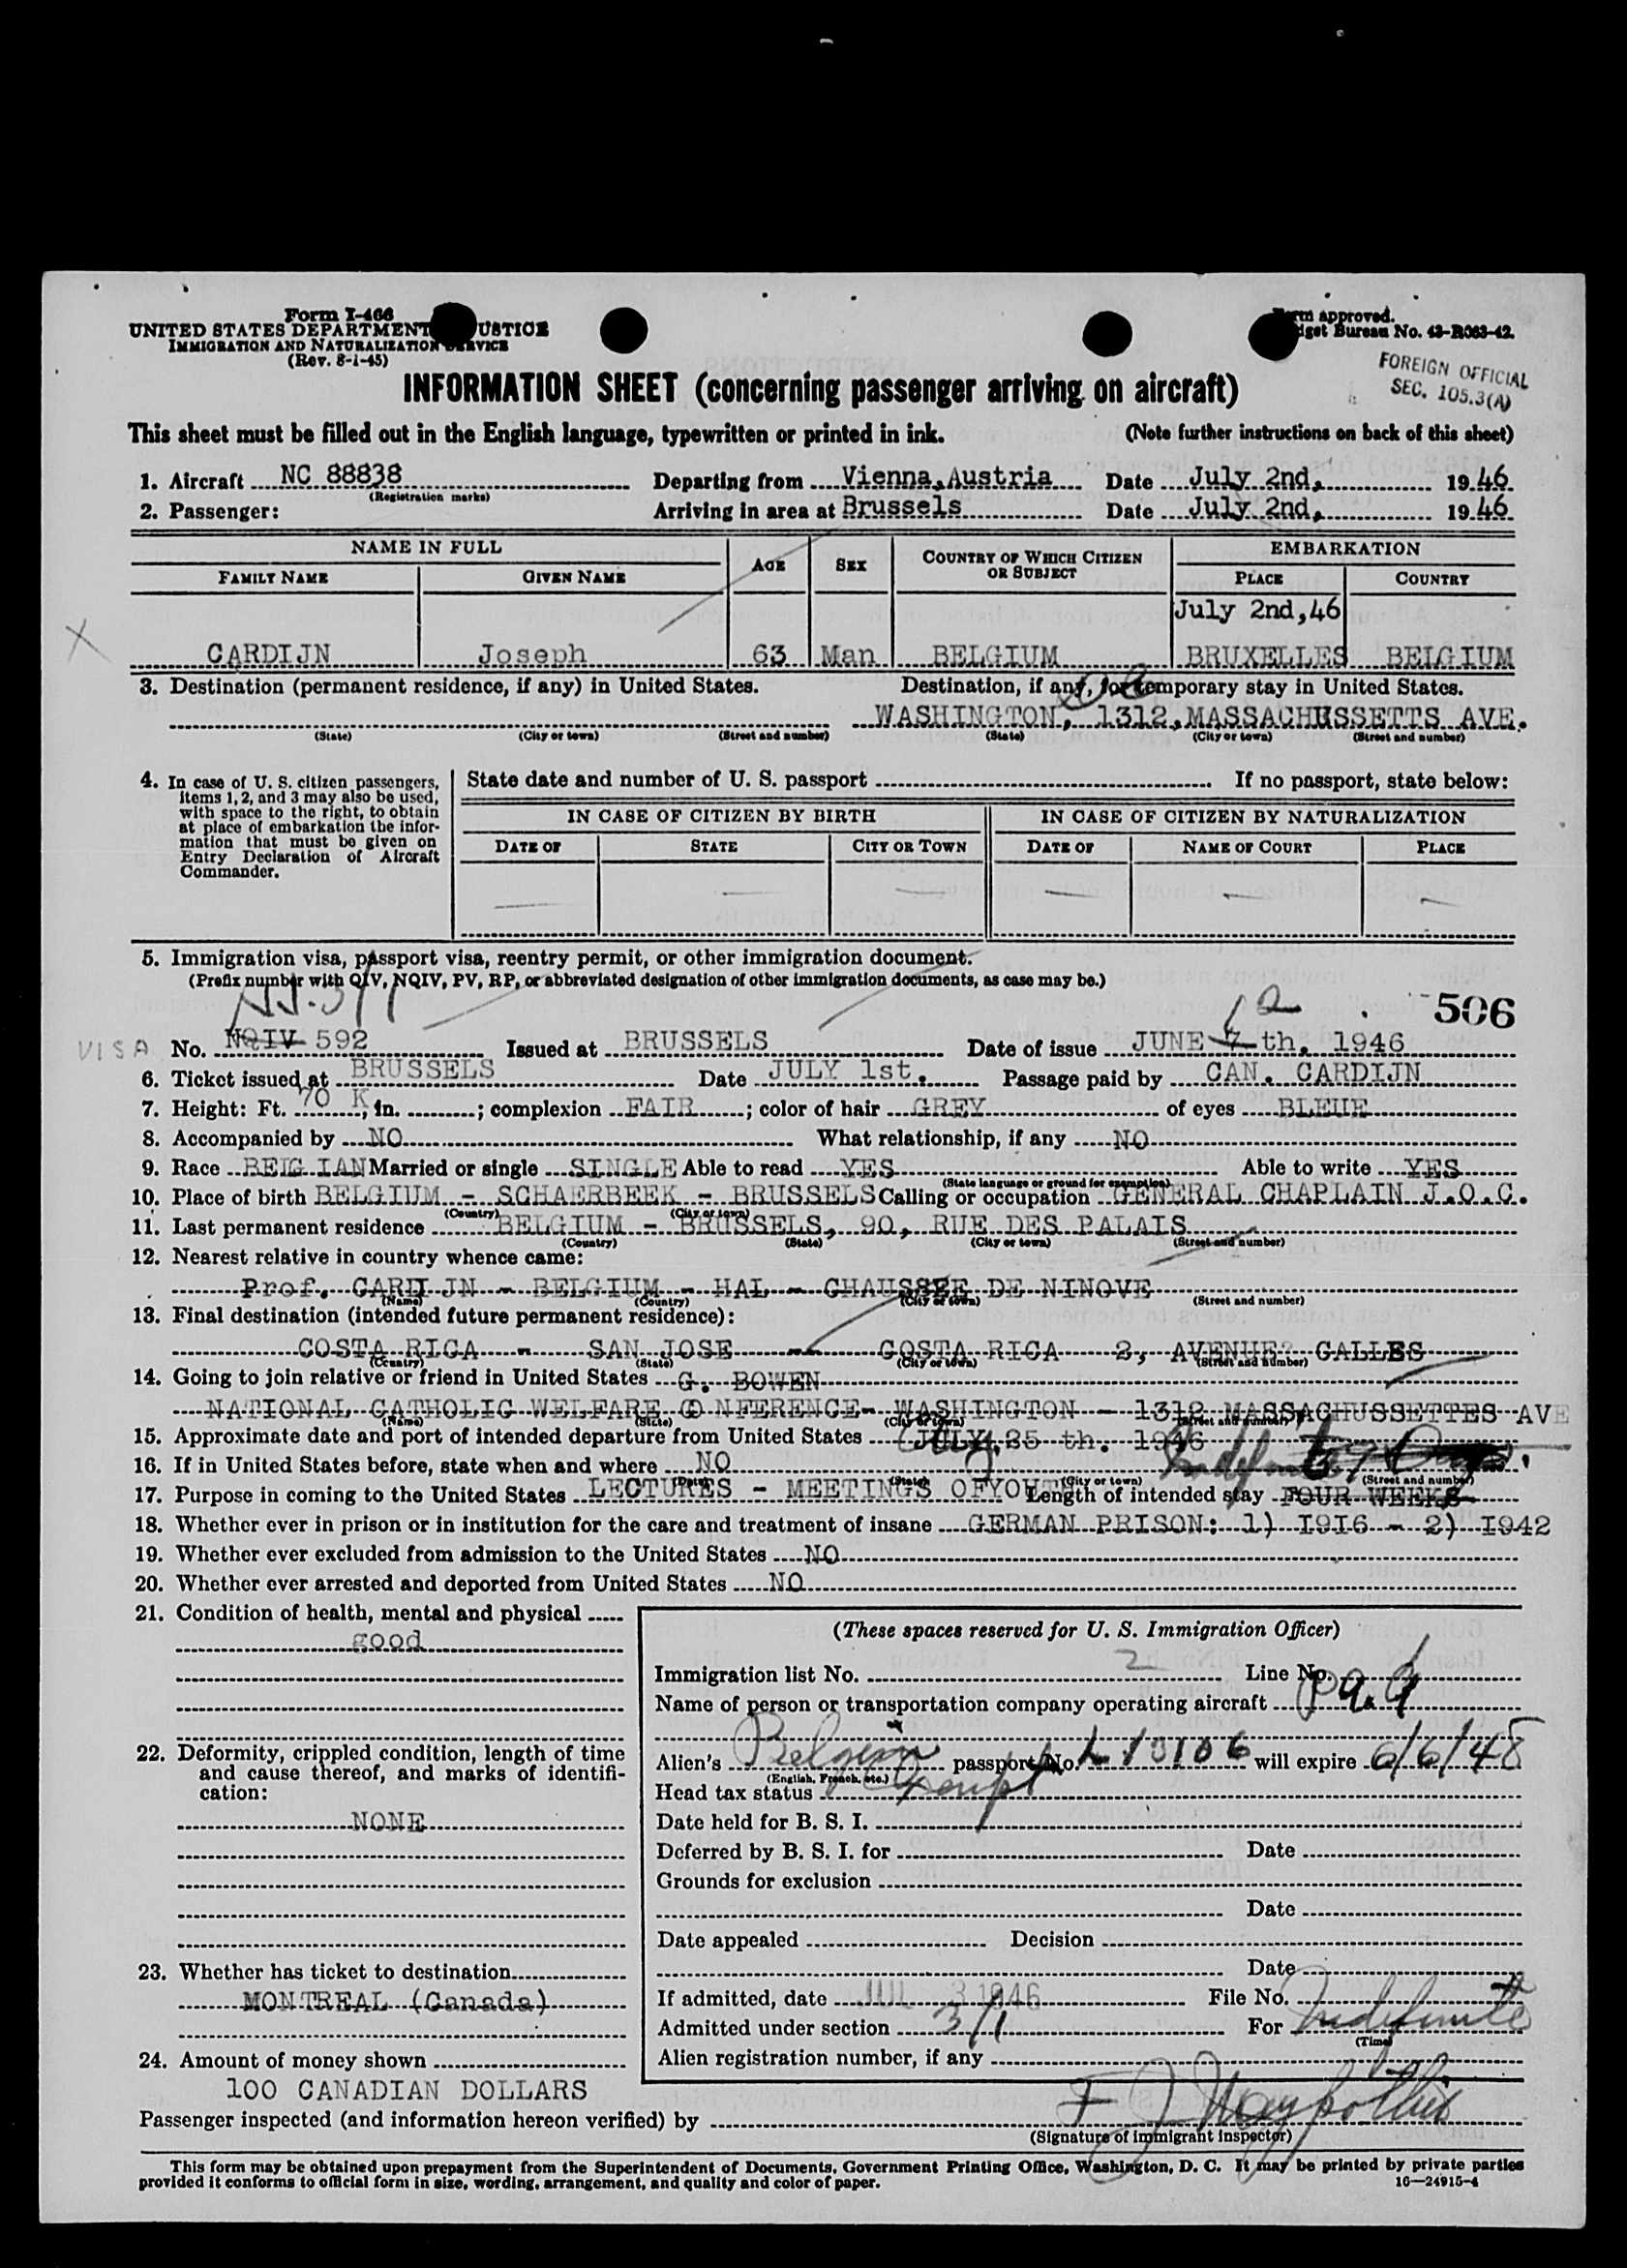 Form I-466
UNITED STATES DEPARTMENT USTICE
IMMIGRATION AND NATURALIZATION SERVICE
(Rev. 8-1-45)
Form approved.
dget Bureau No. 43-R063-42.
FOREIGN OFFICIAL
SEC. 105.3(A)
INFORMATION SHEET (concerning passenger arriving on aircraft)
This sheet must be filled out in the English language, typewritten or printed in ink. (Note further instructions on back of this sheet)
1. Aircraft NC 88838 Departing from Vienna,Austria Date July 2nd, 1946
(Registration marks)
2. Passenger: Arriving in area at Brussels Date July 2nd, 1946
NAME IN FULL AGE SEX COUNTRY OF WHICH CITIZEN OR SUBJECT EMBARKATION
FAMILY NAME GIVEN NAME PLACE COUNTRY
July 2nd,46
X CARDIJN Joseph 63 Man BELGIUM BRUXELLES BELGIUM
3. Destination (permanent residence, if any) in United States. Destination, if any, for temporary stay in United States.
WASHINGTON, 1312,MASSACHUSSETTS AVE.
(State) (City or town) (Street and number) (State) (City or town) (Street and number)
4. In case of U. S. citizen passengers, items 1, 2, and 3 may also be used, with space to the right, to obtain at place of embarkation the information that must be given on Entry Declaration of Aircraft Commander.
State date and number of U. S. passport If no passport, state below:
IN CASE OF CITIZEN BY BIRTH IN CASE OF CITIZEN BY NATURALIZATION
DATE OF STATE CITY OR TOWN DATE OF NAME OF COURT PLACE
5. Immigration visa, passport visa, reentry permit, or other immigration document.
(Prefix number with QIV, NQIV, PV, RP, or abbreviated designation of other immigration documents, as case may be.)
506
VISA No. NQIV 592 Issued at BRUSSELS Date of issue JUNE 7 th, 1946
6. Ticket issued at BRUSSELS Date JULY 1st. Passage paid by CAN. CARDIJN
7. Height: Ft. 70 K, in. ; complexion FAIR ; color of hair GREY of eyes BLEUE
8. Accompanied by NO What relationship, if any NO
9. Race BELG IAN Married or single SINGLE Able to read YES Able to write YES
(State language or ground for exemption)
10. Place of birth BELGIUM - SCHAERBEEK - BRUSSELS Calling or occupation GENERAL CHAPLAIN J.O.C.
(Country) (City or town)
11. Last permanent residence BELGIUM - BRUSSELS, 90, RUE DES PALAIS
(Country) (State) (City or town) (Street and number)
12. Nearest relative in country whence came:
Prof. CARDIJN - BELGIUM - HAL - CHAUSSEE DE NINOVE
(Name) (Country) (City or town) (Street and number)
13. Final destination (intended future permanent residence):
COSTA RICA - SAN JOSE - COSTA RICA 2, AVENUE? CALLES
(Country) (State) (City or town) (Street and number)
14. Going to join relative or friend in United States G. BOWEN
NATIONAL CATHOLIC WELFARE CONFERENCE- WASHINGTON - 1312 MASSACHUSSETTES AVE
(Name) (State) (City or town) (Street and number)
15. Approximate date and port of intended departure from United States JULY 25 th. 1946
16. If in United States before, state when and where NO
(Date) (State) (City or town) (Street and number)
17. Purpose in coming to the United States LECTURES - MEETINGS OFYOUTH Length of intended stay FOUR WEEKS
18. Whether ever in prison or in institution for the care and treatment of insane GERMAN PRISON: 1) I9I6 - 2) I942
19. Whether ever excluded from admission to the United States NO
20. Whether ever arrested and deported from United States NO
21. Condition of health, mental and physical
good
22. Deformity, crippled condition, length of time and cause thereof, and marks of identification:
NONE
23. Whether has ticket to destination
MONTREAL (Canada)
24. Amount of money shown
100 CANADIAN DOLLARS
(These spaces reserved for U. S. Immigration Officer)
Immigration list No. 2 Line No.
Name of person or transportation company operating aircraft
Alien's Belgian passport No. L 13106 will expire 6/6/48
(English, French, etc.)
Head tax status Exempt
Date held for B. S. I.
Deferred by B. S. I. for Date
Grounds for exclusion
Date
Date appealed Decision
Date
If admitted, date JUL 3 1946 File No.
Admitted under section 3/1 For Indefinite
(Time)
Alien registration number, if any
Passenger inspected (and information hereon verified) by
(Signature of immigrant inspector)
This form may be obtained upon prepayment from the Superintendent of Documents, Government Printing Office, Washington, D. C. It may be printed by private parties
provided it conforms to official form in size, wording, arrangement, and quality and color of paper. 16—24915-4